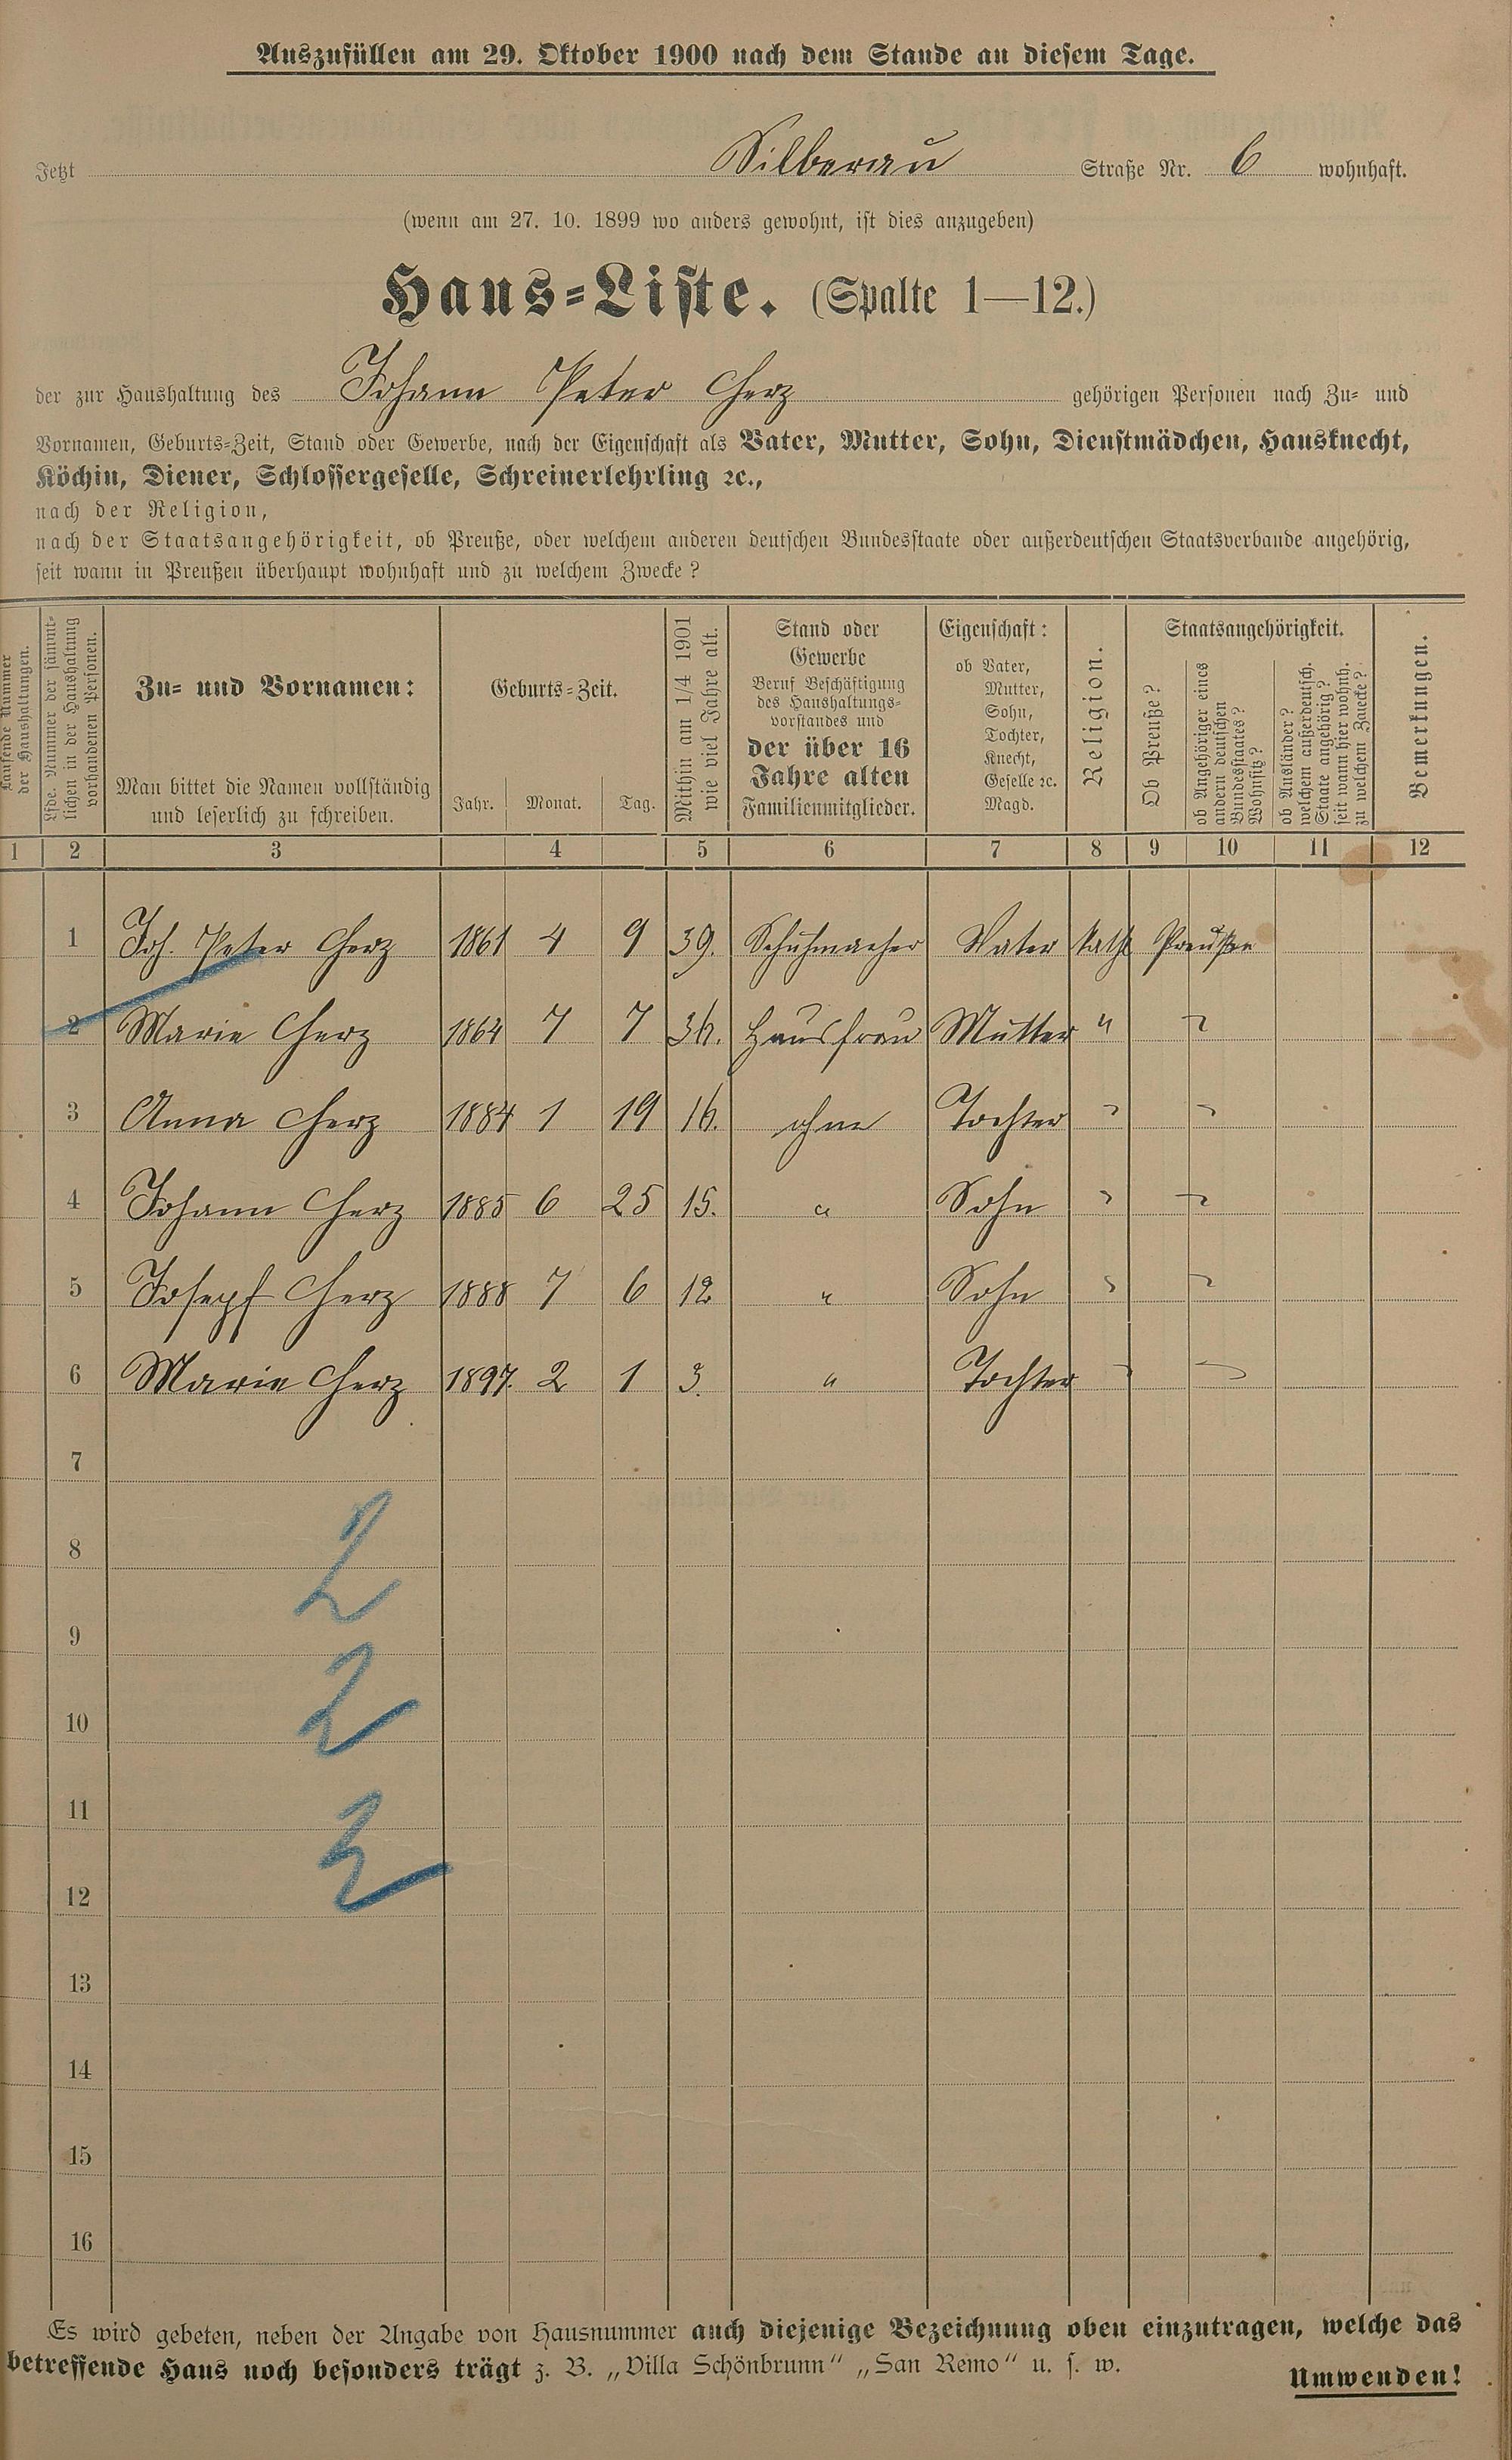 Auszufüllen am 29. Oktober 1900 nach dem Stande an diesem Tage.
Jetzt Silberau Straße Nr. 6 wohnhaft.
(wenn am 27. 10. 1899 wo anders gewohnt, ist dies anzugeben)
Haus=Liste. (Spalte 1—12.)
der zur Haushaltung des Johann Peter Cherz gehörigen Personen nach Zu= und
Vornamen, Geburts=Zeit, Stand oder Gewerbe, nach der Eigenschaft als Vater, Mutter, Sohn, Dienstmädchen, Hausknecht,
Köchin, Diener, Schlossergeselle, Schreinerlehrling ꝛc.,
nach der Religion,
nach der Staatsangehörigkeit, ob Preuße, oder welchem anderen deutschen Bundesstaate oder außerdeutschen Staatsverbande angehörig,
seit wann in Preußen überhaupt wohnhaft und zu welchem Zwecke?
Laufende Nummer
der Haushaltungen.
Lfde. Nummer der sämmt=
lichen in der Haushaltung
vorhandenen Personen.
Zu= und Vornamen:
Man bittet die Namen vollständig
und leserlich zu schreiben.
Geburts=Zeit.
Jahr. Monat. Tag.
Mithin am 1/4 1901
wie viel Jahre alt.
Stand oder
Gewerbe
Beruf Beschäftigung
des Haushaltungs=
vorstandes und
der über 16
Jahre alten
Familienmitglieder.
Eigenschaft:
ob Vater,
Mutter,
Sohn,
Tochter,
Knecht,
Geselle ꝛc.
Magd.
Religion.
Staatsangehörigkeit.
Ob Preuße?
ob Angehöriger eines
andern deutschen
Bundesstaates?
Wohnsitz?
ob Ausländer?
welchem außerdeutsch.
Staate angehörig?
seit wann hier wohnh.
zu welchem Zwecke?
Bemerkungen.
1 2 3 4 5 6 7 8 9 10 11 12
1 Joh. Peter Cherz 1861 4 9 39. Schuhmacher Vater kath Preußen
2 Marie Cherz 1864 7 7 36. Hausfrau Mutter "
3 Anna Cherz 1884 1 19 16. ohne Tochter
4 Johann Cherz 1885 6 25 15. " Sohn
5 Josepf Cherz 1888 7 6 12 " Sohn
6 Marie Cherz 1897. 2 1 3. " Tochter
7
8
9
10
11
12
13
14
15
16
Es wird gebeten, neben der Angabe von Hausnummer auch diejenige Bezeichnung oben einzutragen, welche das
betreffende Haus noch besonders trägt z. B. „Villa Schönbrunn" „San Remo" u. s. w.
Umwenden!